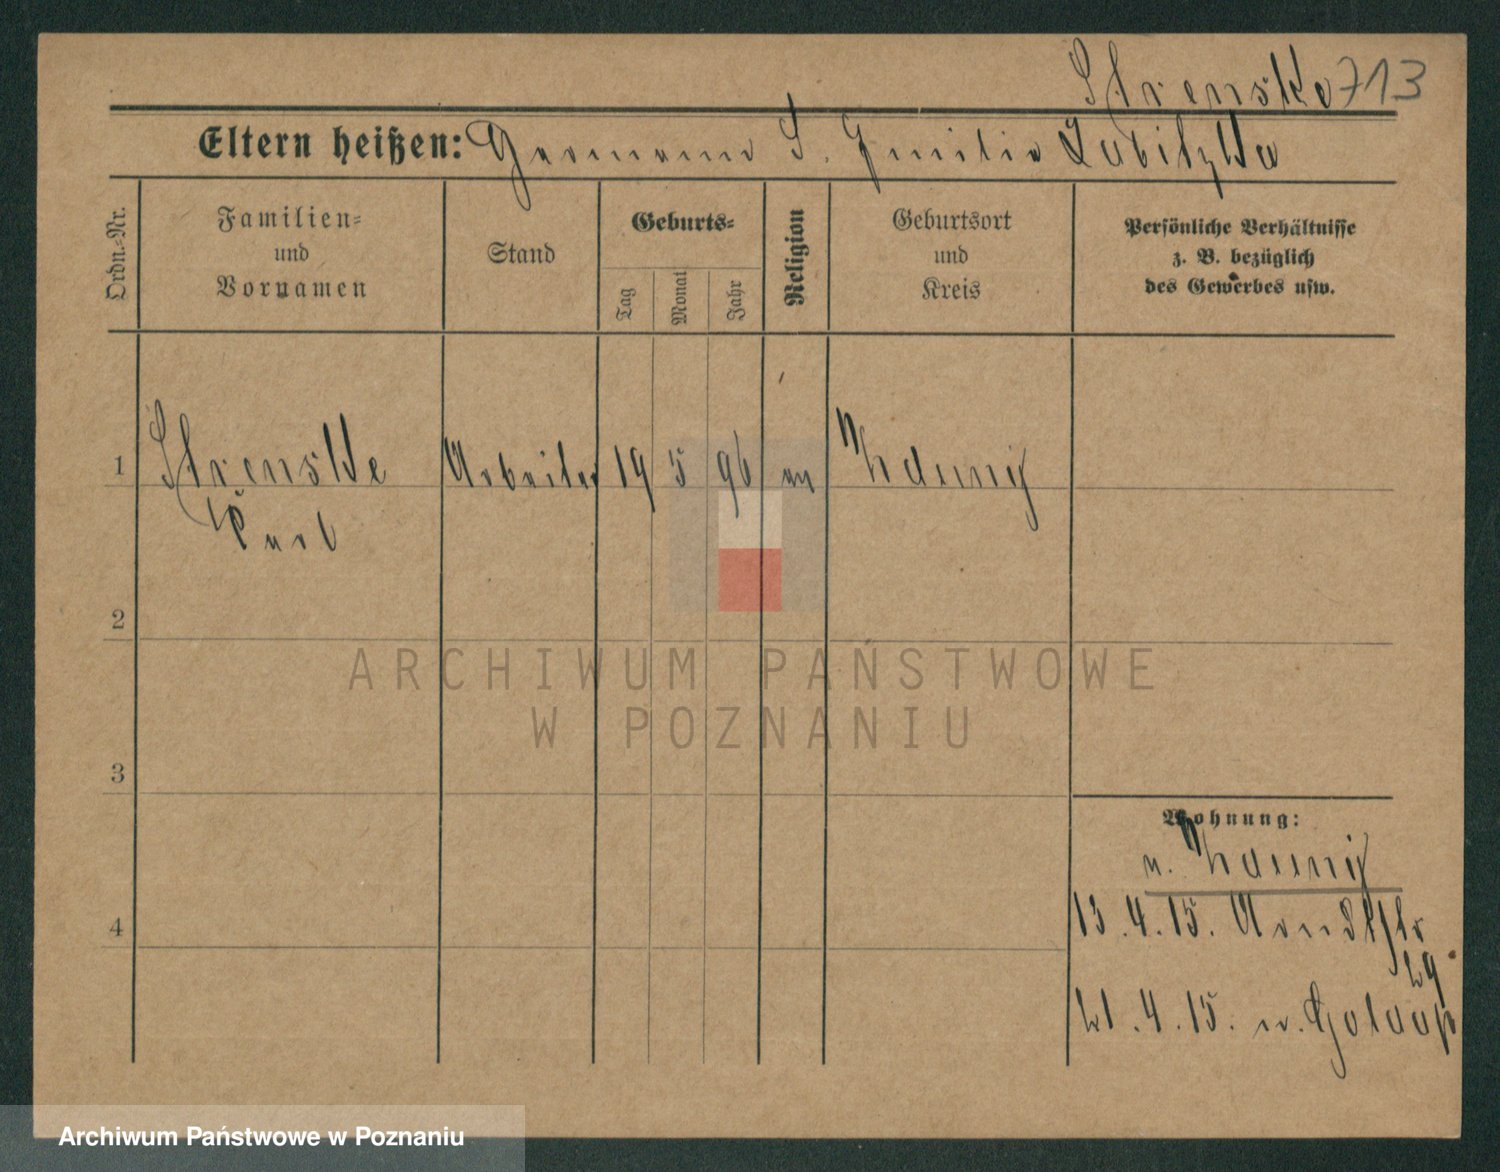 Strenske 713
Eltern heißen: Hermann S. Emilie
Ordn.=Nr.
Familien=
und
Vornamen
Stand
Geburts=
Tag
Monat
Jahr
Religion
Geburtsort
und
Kreis
Persönliche Verhältnisse
z. B. bezüglich
des Gewerbes usw.
1 Strenske Arbeiter 19 5 96 ev
Kurt
2
ARCHIWUM PAŃSTWOWE
W POZNANIU
3
Wohnung:
n.
4
13.4.15. Arndtstr
29
21.4.15. n. Goldap
Archiwum Państwowe w Poznaniu